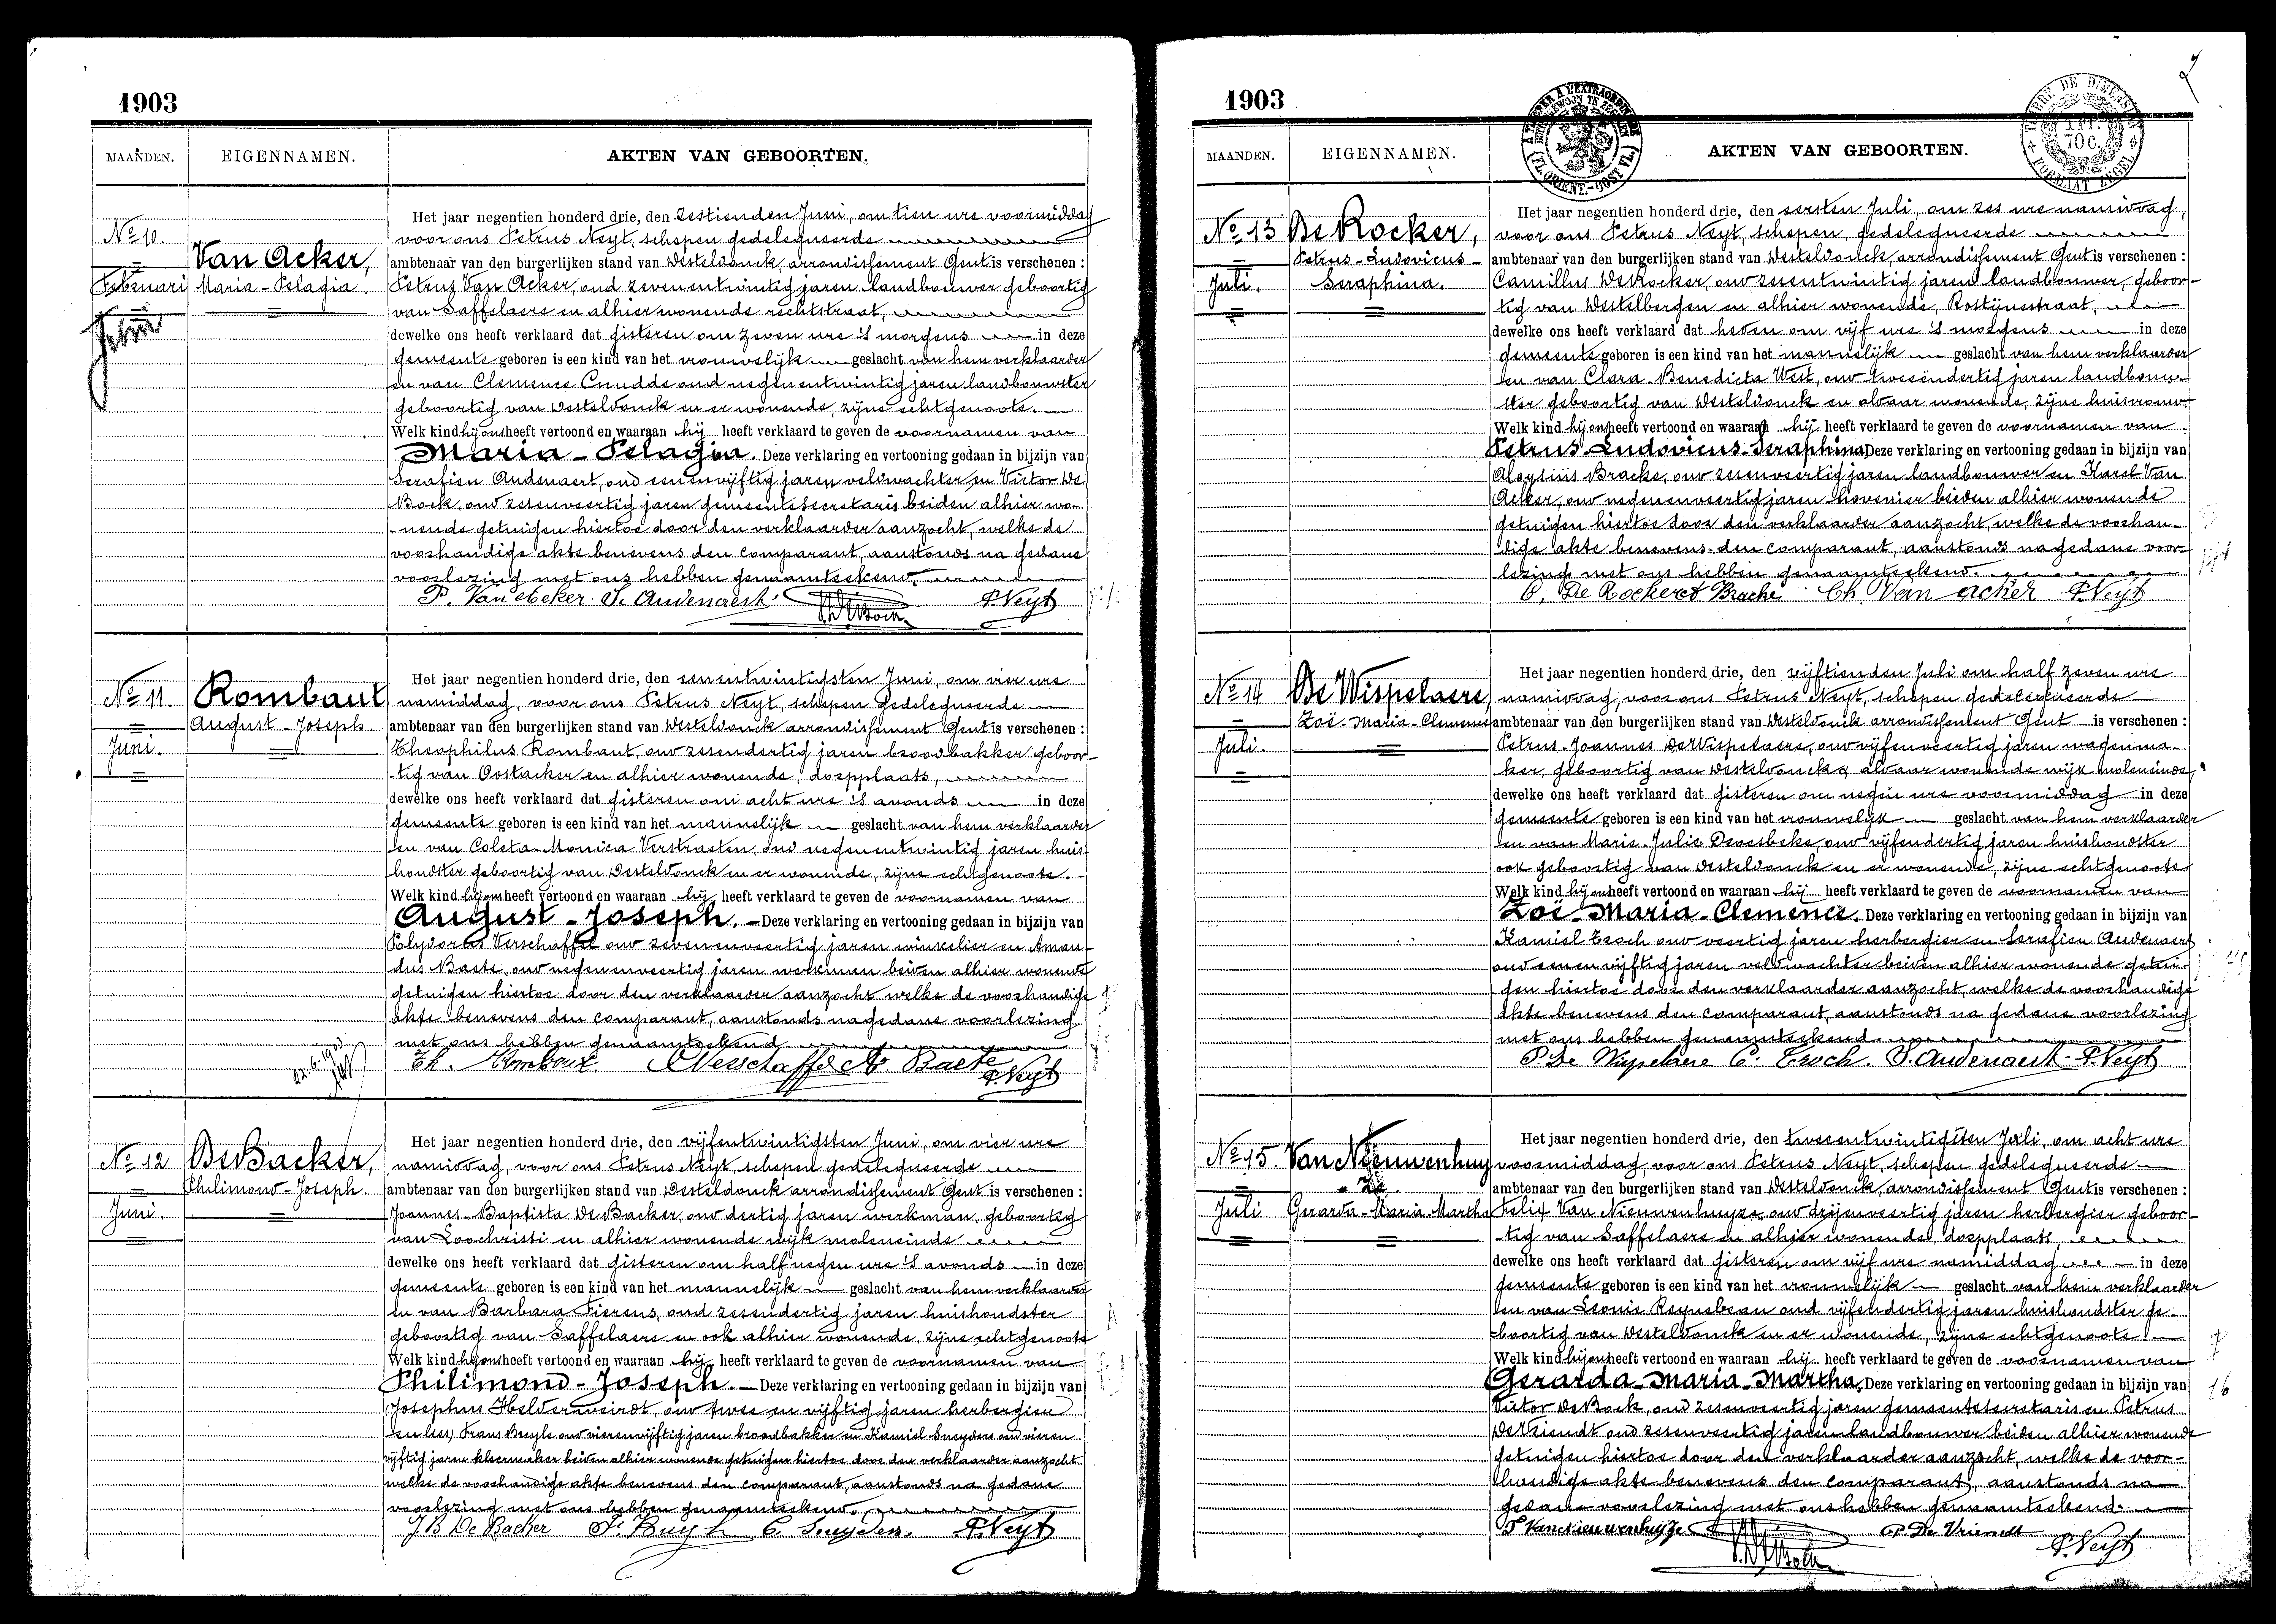 1903
MAANDEN. EIGENNAMEN. AKTEN VAN GEBOORTEN.
No 10.
Februari
Juni
Van Acker,
Maria-Pelagia
Het jaar negentien honderd drie, den zestienden Juni, om tien ure voormiddag
voor ons Petrus Neyt, schepen gedelegueerde
ambtenaar van den burgerlijken stand van Desteldonck, arrondissement Gent is verschenen :
Petrus Van Acker, oud zevenentwintig jaren landbouwer geboortig
van Saffelaere en alhier wonende rechtstraat,
dewelke ons heeft verklaard dat gisteren om zeven ure 's morgens in deze
gemeente geboren is een kind van het vrouwelijk geslacht van hem verklaarder
en van Clemence Cnudde oud negenentwintig jaren landbouwster
geboortig van Desteldonck en er wonende, zijne echtgenoote.
Welk kind hij ons heeft vertoond en waaraan hij heeft verklaard te geven de voornamen van
Maria-Pelagia. Deze verklaring en vertooning gedaan in bijzijn van
Serafien Audenaert, oud eenenvijftig jaren veldwachter en Victor De
Bock, oud zesenveertig jaren gemeentesecretaris beiden alhier wo-
-nende getuigen hiertoe door den verklaarder aanzocht, welke de
voorhandige akte benevens den comparant, aanstonds na gedane
voorlezing met ons hebben genaamteekend.
P. Van Acker S. Audenaert V. De Bock P. Neyt
No 11.
Juni.
Rombaut
August-Joseph.
Het jaar negentien honderd drie, den eenentwintigsten Juni, om vier ure
namiddag, voor ons Petrus Neyt, schepen gedelegueerde
ambtenaar van den burgerlijken stand van Desteldonck arrondissement Gent is verschenen :
Theophilus Rombaut, oud zesendertig jaren broodbakker geboor-
-tig van Oostacker en alhier wonende, dorpplaats,
dewelke ons heeft verklaard dat gisteren om acht ure 's avonds in deze
gemeente geboren is een kind van het mannelijk geslacht van hem verklaarder
en van Coleta-Monica Verstraeten, oud negenentwintig jaren huis-
houdster geboortig van Desteldonck en er wonende, zijne echtgenoote.
Welk kind hij ons heeft vertoond en waaraan hij heeft verklaard te geven de voornamen van
August-Joseph. Deze verklaring en vertooning gedaan in bijzijn van
Polydorus Verschaffel oud zevenenveertig jaren winkelier en Aman-
dus Baete, oud negenenveertig jaren werkman beiden alhier wonende
getuigen hiertoe door den verklaarder aanzocht welke de voorhandige
akte benevens den comparant, aanstonds na gedane voorlezing
met ons hebben genaamteekend
Th. Rombaut P Verschaffel A Baete
P. Neyt
No 12
Juni.
De Backer,
Philimond-Joseph.
Het jaar negentien honderd drie, den vijfentwintigsten Juni, om vier ure
namiddag, voor ons Petrus Neyt, schepen gedelegueerde
ambtenaar van den burgerlijken stand van Desteldonck arrondissement Gent is verschenen :
Joannes-Baptista De Backer, oud dertig jaren werkman, geboortig
van Loochristi en alhier wonende wijk moleneinde
dewelke ons heeft verklaard dat gisteren om half negen ure 's avonds in deze
gemeente geboren is een kind van het mannelijk geslacht van hem verklaarder
en van Barbara Fierens, oud zesendertig jaren huishoudster
geboortig van Saffelaere en ook alhier wonende, zijne echtgenoote
Welk kind hij ons heeft vertoond en waaraan hij heeft verklaard te geven de voornamen van
Philimond-Joseph. Deze verklaring en vertooning gedaan in bijzijn van
(Josephus Helderweirdt, oud twee en vijftig jaren herbergier
en lees) Frans Buyle oud vierenvijftig jaren broodbakker en Kamiel Sneyders oud vieren
vijftig jaren kleermaker beiden alhier wonende getuigen hiertoe door den verklaarder aanzocht
welke de voorhandige akte benevens den comparant, aanstonds na gedane
voorlezing met ons hebben genaamteekend.
J B De Backer P. Neyt
1903
MAANDEN. EIGENNAMEN. AKTEN VAN GEBOORTEN.
No 13
Juli.
De Rocker,
Petrus-Ludovicus-
Seraphina.
Het jaar negentien honderd drie, den eersten Juli, om zes ure namiddag,
voor ons Petrus Neyt, schepen, gedelegueerde
ambtenaar van den burgerlijken stand van Desteldonck, arrondissement Gent is verschenen :
Camillus De Rocker, oud zesentwintig jaren landbouwer, geboor-
tig van Destelbergen en alhier wonende, Rostijnestraat,
dewelke ons heeft verklaard dat heden om vijf ure 's morgens in deze
gemeente geboren is een kind van het mannelijk geslacht van hem verklaarder
en van Clara-Benedicta West, oud tweeëndertig jaren landbouw-
ster geboortig van Desteldonck en aldaar wonende, zijne huisvrouw.
Welk kind hij ons heeft vertoond en waaraan hij heeft verklaard te geven de voornamen van
Petrus-Ludovicus-Seraphina. Deze verklaring en vertooning gedaan in bijzijn van
Aloysius Bracke, oud zesenveertig jaren landbouwer en Karel Van
Acker, oud negenenveertig jaren hovenier beiden alhier wonende
getuigen hiertoe door den verklaarder aanzocht, welke de voorhan-
dige akte benevens den comparant, aanstonds na gedane voor-
lezing met ons hebben genaamteekend.
C. De Rocker A Bracke Ch. Van acker P. Neyt
No 14
Juli.
De Wispelaere,
Zoë-Maria-Clemence
Het jaar negentien honderd drie, den vijftienden Juli om half zeven ure
namiddag, voor ons Petrus Neyt, schepen gedelegueerde
ambtenaar van den burgerlijken stand van Desteldonck arrondissement Gent is verschenen :
Petrus-Joannes De Wispelaere, oud vijfenveertig jaren wagenma-
ker, geboortig van Desteldonck & aldaar wonende wijk moleneinde,
dewelke ons heeft verklaard dat gisteren om negen ure voormiddag in deze
gemeente geboren is een kind van het vrouwelijk geslacht van hem verklaarder
en van Marie-Julie Devesbeke, oud vijfendertig jaren huishoudster
ook geboortig van Desteldonck en er wonende, zijne echtgenoote
Welk kind hij ons heeft vertoond en waaraan hij heeft verklaard te geven de voornamen van
Zoë-Maria-Clemence. Deze verklaring en vertooning gedaan in bijzijn van
Kamiel Troch oud veertig jaren herbergier en Serafien Audenaert
oud eenenvijftig jaren veldwachter beiden alhier wonende getui-
gen hiertoe door den verklaarder aanzocht, welke de voorhandige
akte benevens den comparant, aanstonds na gedane voorlezing
met ons hebben genaamteekend.
P. De Wispelaere C. Troch. S. Audenaert P. Neyt
No 15
Juli
Van Nieuwenhuy
-ze.
Gerarda-Maria-Martha
Het jaar negentien honderd drie, den tweeentwintigsten Juli, om acht ure
voormiddag, voor ons Petrus Neyt, schepen gedelegueerde
ambtenaar van den burgerlijken stand van Desteldonck, arrondissement Gent is verschenen :
Felix Van Nieuwenhuyze, oud drijenveertig jaren herbergier geboor-
-tig van Saffelaere en alhier wonende, dorpplaats,
dewelke ons heeft verklaard dat gisteren om vijf ure namiddag in deze
gemeente geboren is een kind van het vrouwelijk geslacht van hem verklaarder
en van Leonie Reynebeau oud vijfendertig jaren huishoudster ge-
-boortig van Desteldonck en er wonende, zijne echtgenoote
Welk kind hij ons heeft vertoond en waaraan hij heeft verklaard te geven de voornamen van
Gerarda-Maria-Martha. Deze verklaring en vertooning gedaan in bijzijn van
Victor De Bock, oud zesenveertig jaren gemeentesecretaris en Petrus
De Vriendt oud zesenveertig jaren landbouwer beiden alhier wonende
getuigen hiertoe door den verklaarder aanzocht, welke de voor-
handige akte benevens den comparant, aanstonds na
gedane voorlezing met ons hebben genaamteekend.
F Van Nieuwenhuyze V. De Bock P. De Vriendt
P. Neyt